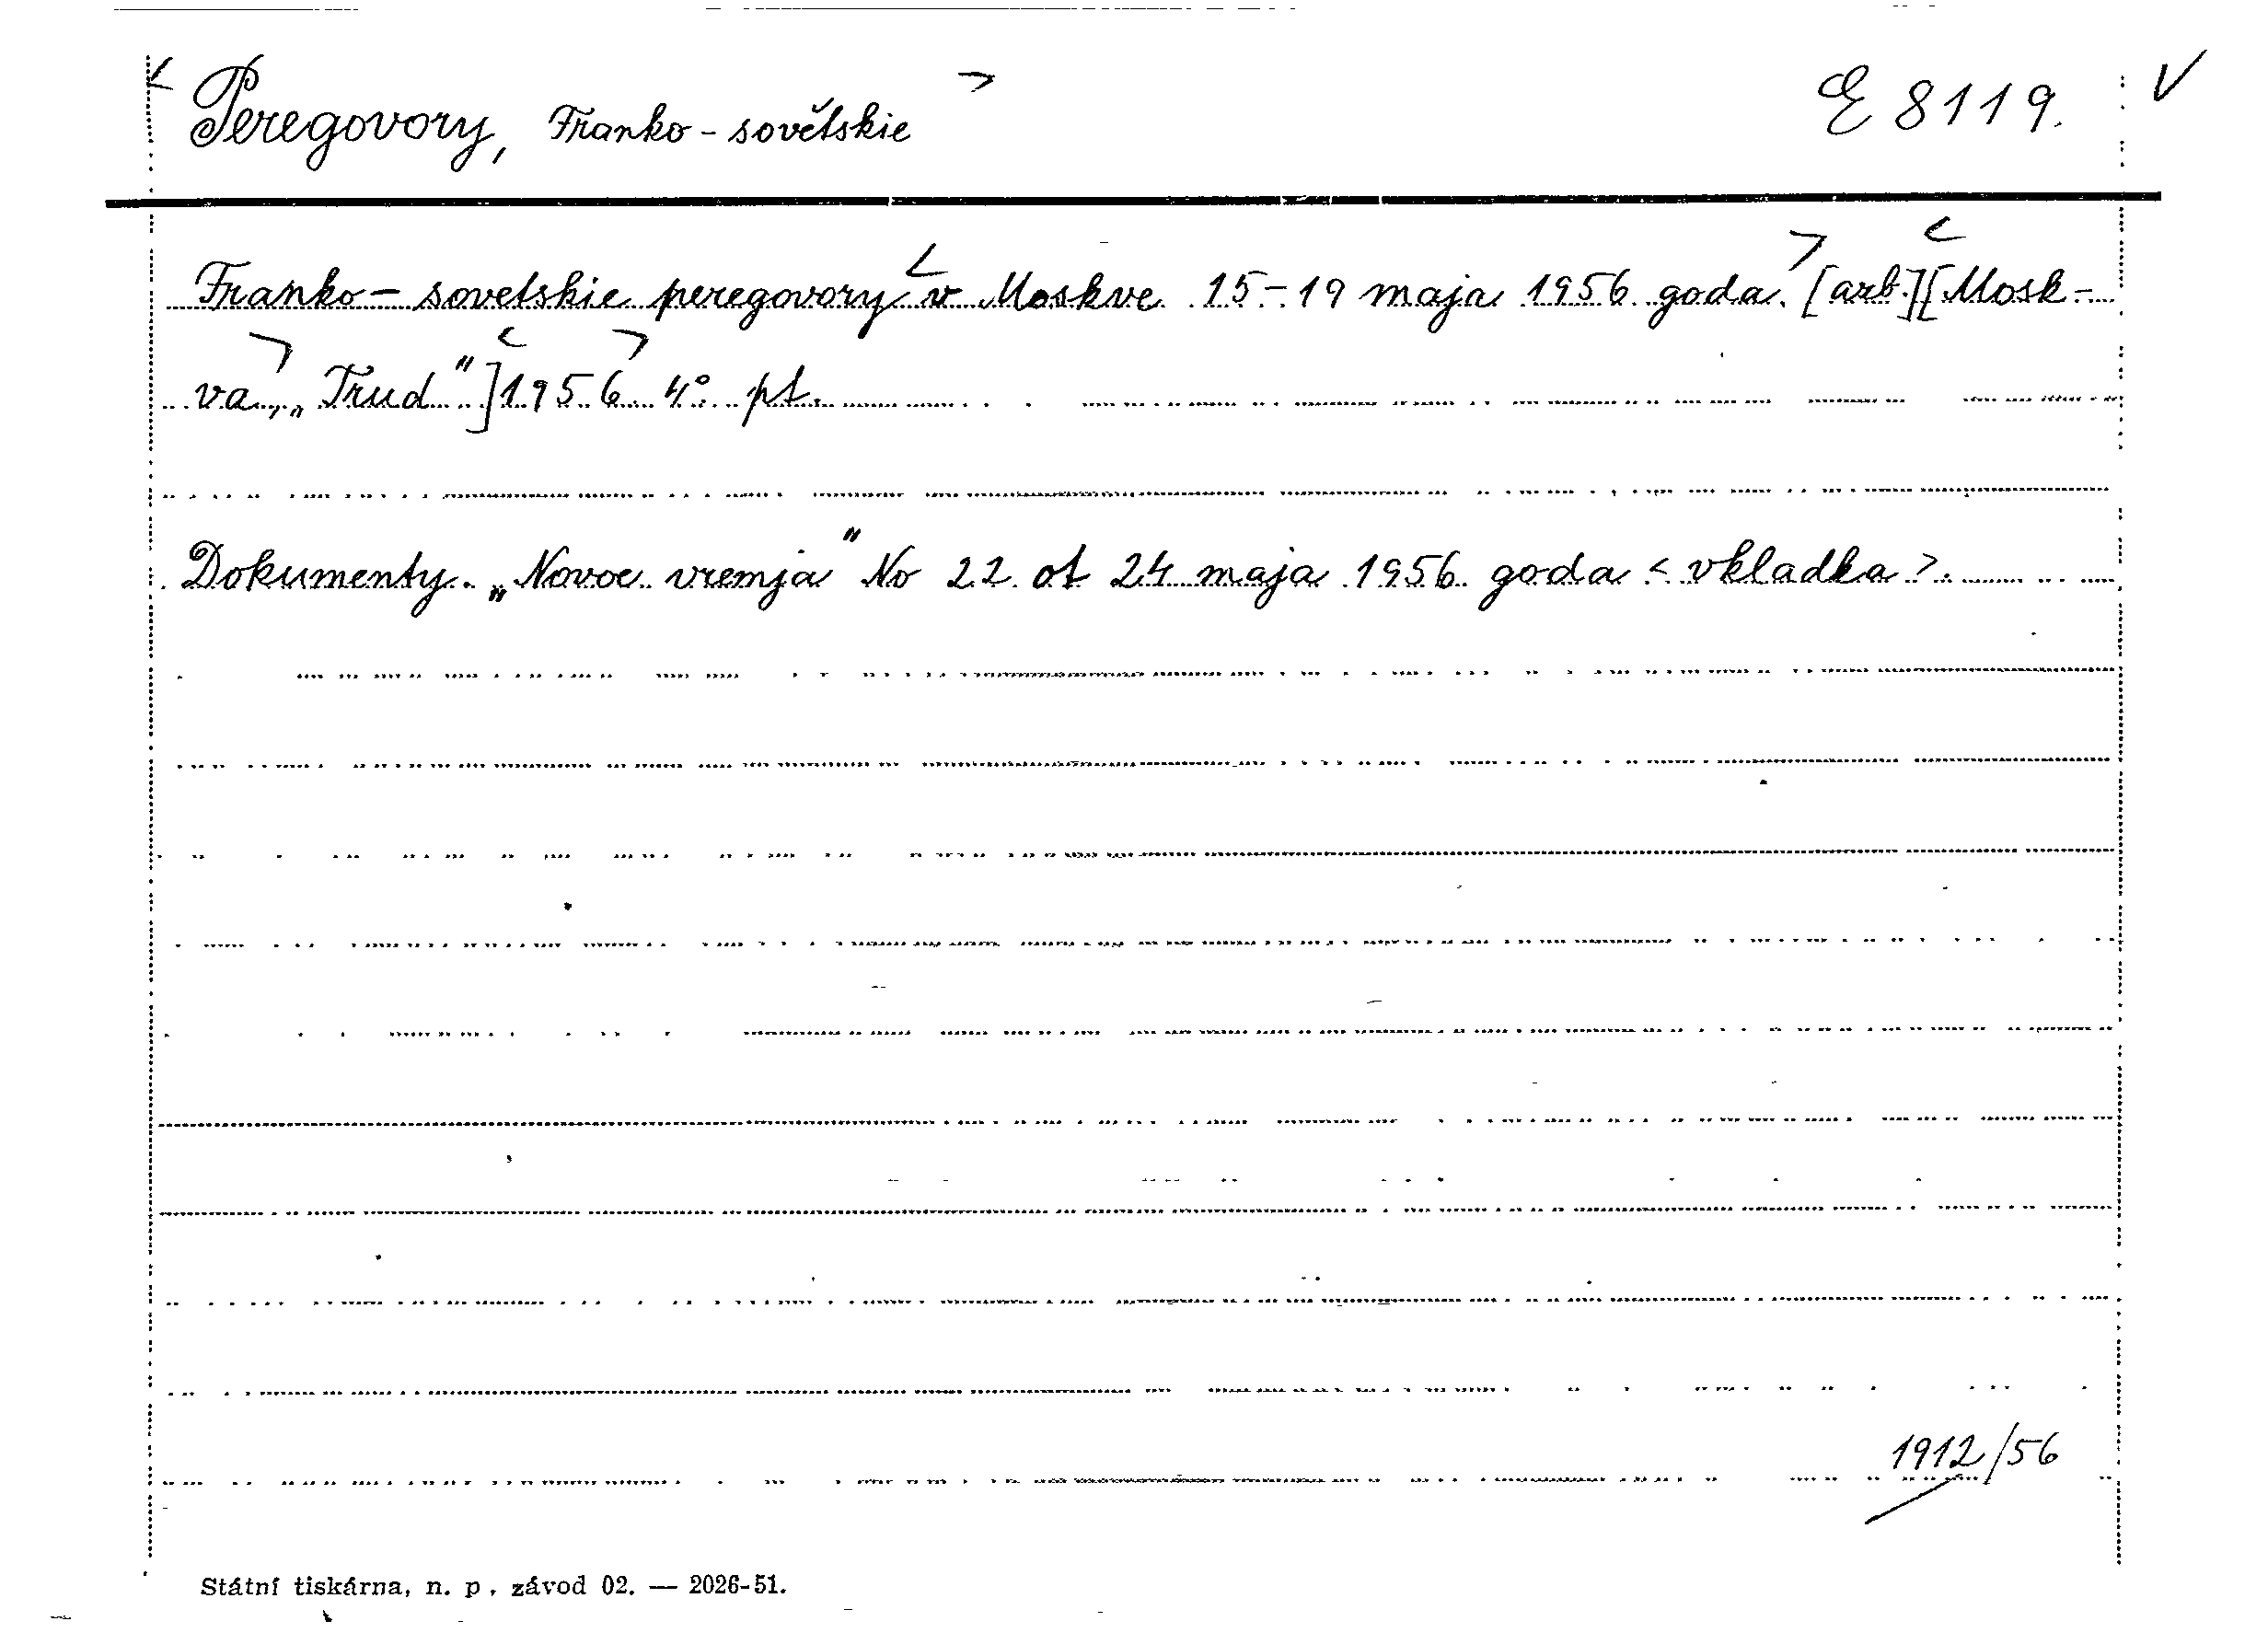 < Peregovory, Franko-sovětskie > E 8119. V
Franko-sovetskie peregovory < v Moskve 15-19 maja 1956 goda. > [azb.] < [Mosk-
va, > „Trud"] < 1956 > 4° pt.
Dokumenty. „Novoe vremja" No 22 ot 24 maja 1956 goda < vkladka >.
1912/56
Státní tiskárna, n. p. závod 02. — 2026-51.